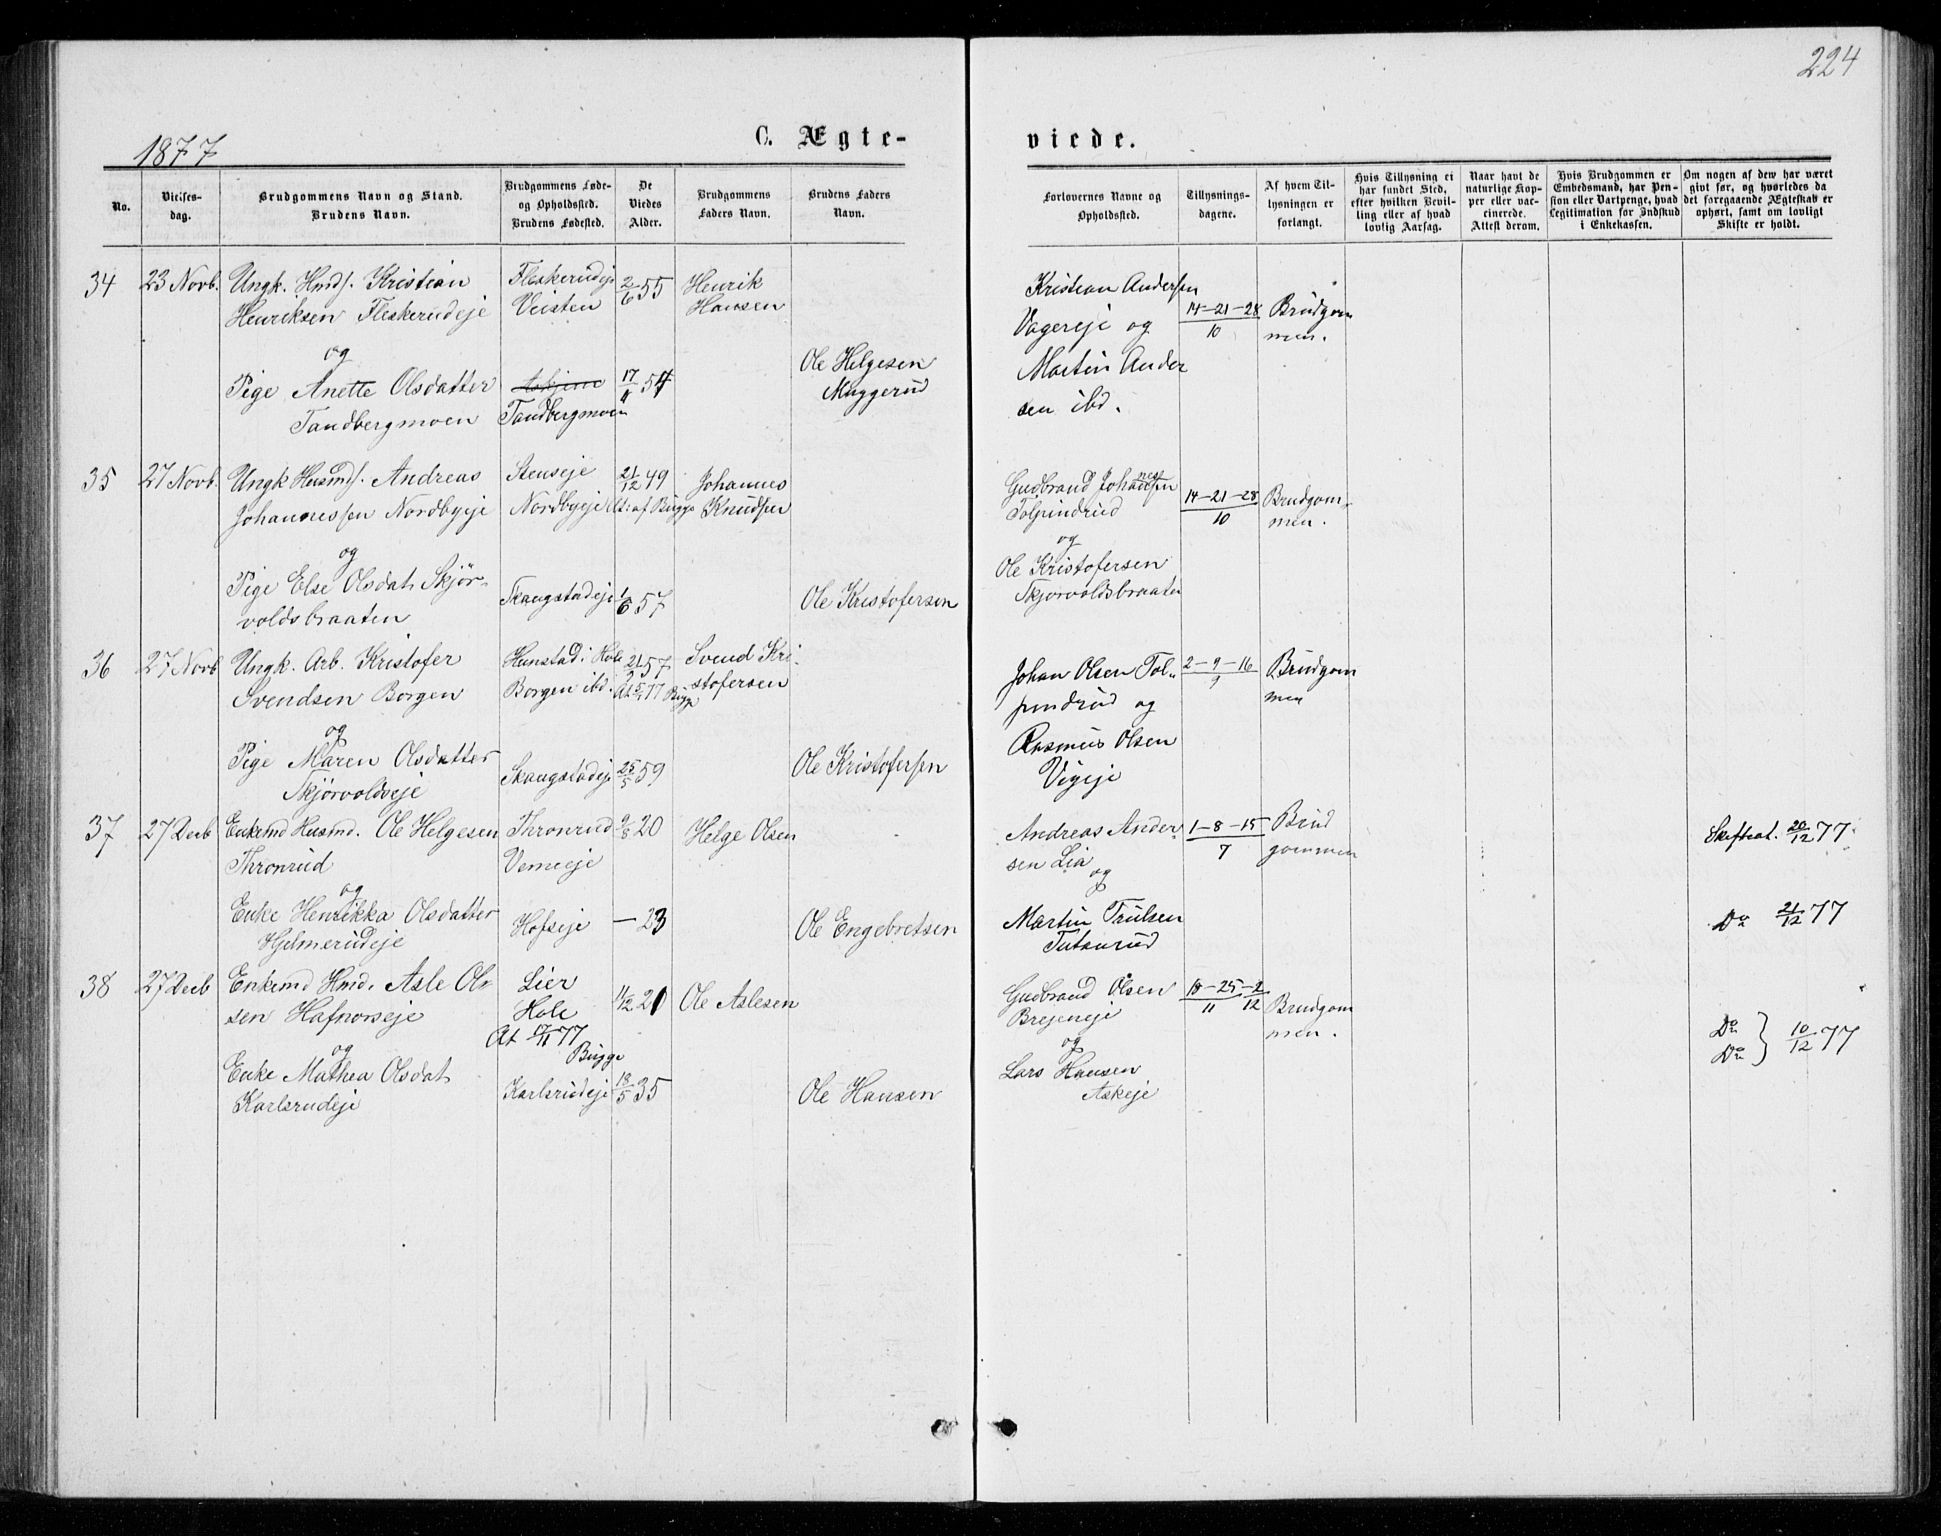 224
1877
C. Ægte-
viede.
No.
Vielses-
dag.
Brudgommens Navn og Stand.
Brudens Navn.
Brudgommens Føde-
og Opholdssted.
Brudens Fødested.
De
Viedes
Alder.
Brudgommens
Faders Navn.
Brudens Faders
Navn.
Forlovernes Navne og
Opholdssted.
Tillysnings-
dagene.
Af hvem Til-
lysningen er
forlangt.
Hvis Tillysning ei
har fundet Sted,
efter hvilken Bevil-
ling eller af hvad
lovlig Aarsag.
Naar havt de
naturlige Kop-
per eller vac-
cinerede.
Attest derom.
Hvis Brudgommen er
Embedsmand, har Pen-
sion eller Vartpenge, hvad
Legitimation for Indskud
i Enkekassen.
Om nogen af dem har været
givt før, og hvorledes da
det foregaaende Ægteskab er
ophørt, samt om lovligt
Skifte er holdt.
34
23 Novb.
Ungk. Hmds. Kristian
Henriksen Fleskerudeje
og
Pige Anette Olsdatter
Tandbergmoen
Fleskerudeje
Veisten
Tandbergmoen
2/6 55
17/11 54
Henrik
Hansen
Ole Helgesen
Muggerud
Kristian Andersen
Vagereje og
Martin Ander
sen ibd.
14-21-28
10
Brudgom
men.
35
27 Novb.
Ungk Husmds. Andreas
Johannessen Nordbyeje
og
Pige Else Olsdat. Skjør-
voldsbraaten
Stenseje
Nordbyeje
Skaugstadeje
21/12 49
At: af Bugge
1/6 57
Johannes
Knudsen
Ole Kristofersen
Gudbrand Johannessen
Tolpindrud
og
Ole Kristofersen
Skjørvoldsbraaten
14-21-28
10
Brudgom-
men.
36
27 Novb
Ungk. Arb. Kristofer
Svendsen Borgen
og
Pige Maren Olsdatter
Skjørvoldseje
Hunstad i Hole
Borgen ibd.
Skaugstadeje
57
77 Bugge
25/5 59
Svend Kri-
stofersen
Ole Kristofersen
Johan Olsen Tol-
pindrud og
Rasmus Olsen
Vigeje
2-9-16
9
Brudgom
men
37
27 Decb
Enkemd Husmd. Ole Helgesen
Thronrud
og
Enke Henrikka Olsdatter
Hjelmerudeje
Thronrud
Vemeeje
Hofseje
20
— 23
Helge Olsen
Ole Engebretsen
Andreas Ander-
sen Lia
og
Martin Trulsen
Tutanrud
1-8-15
7
Brud
gommen
Skifteat. 20/12 77.
Do 21/12 77
38
27 Decb
Enkemd Hmd. Asle Ol-
sen Hafnorseje
og
Enke Mathea Olsdat.
Karlsrudeje
Lier
Hole
At 17/11 77
Bugge
Karlsrudeje
11/2 21
18/5 35
Ole Aslesen
Ole Hansen
Gudbrand Olsen
Brejeneje
og
Lars Hansen
Askeje
18-25-2
11 12
Brudgom
men.
Do
Do } 10/12 77